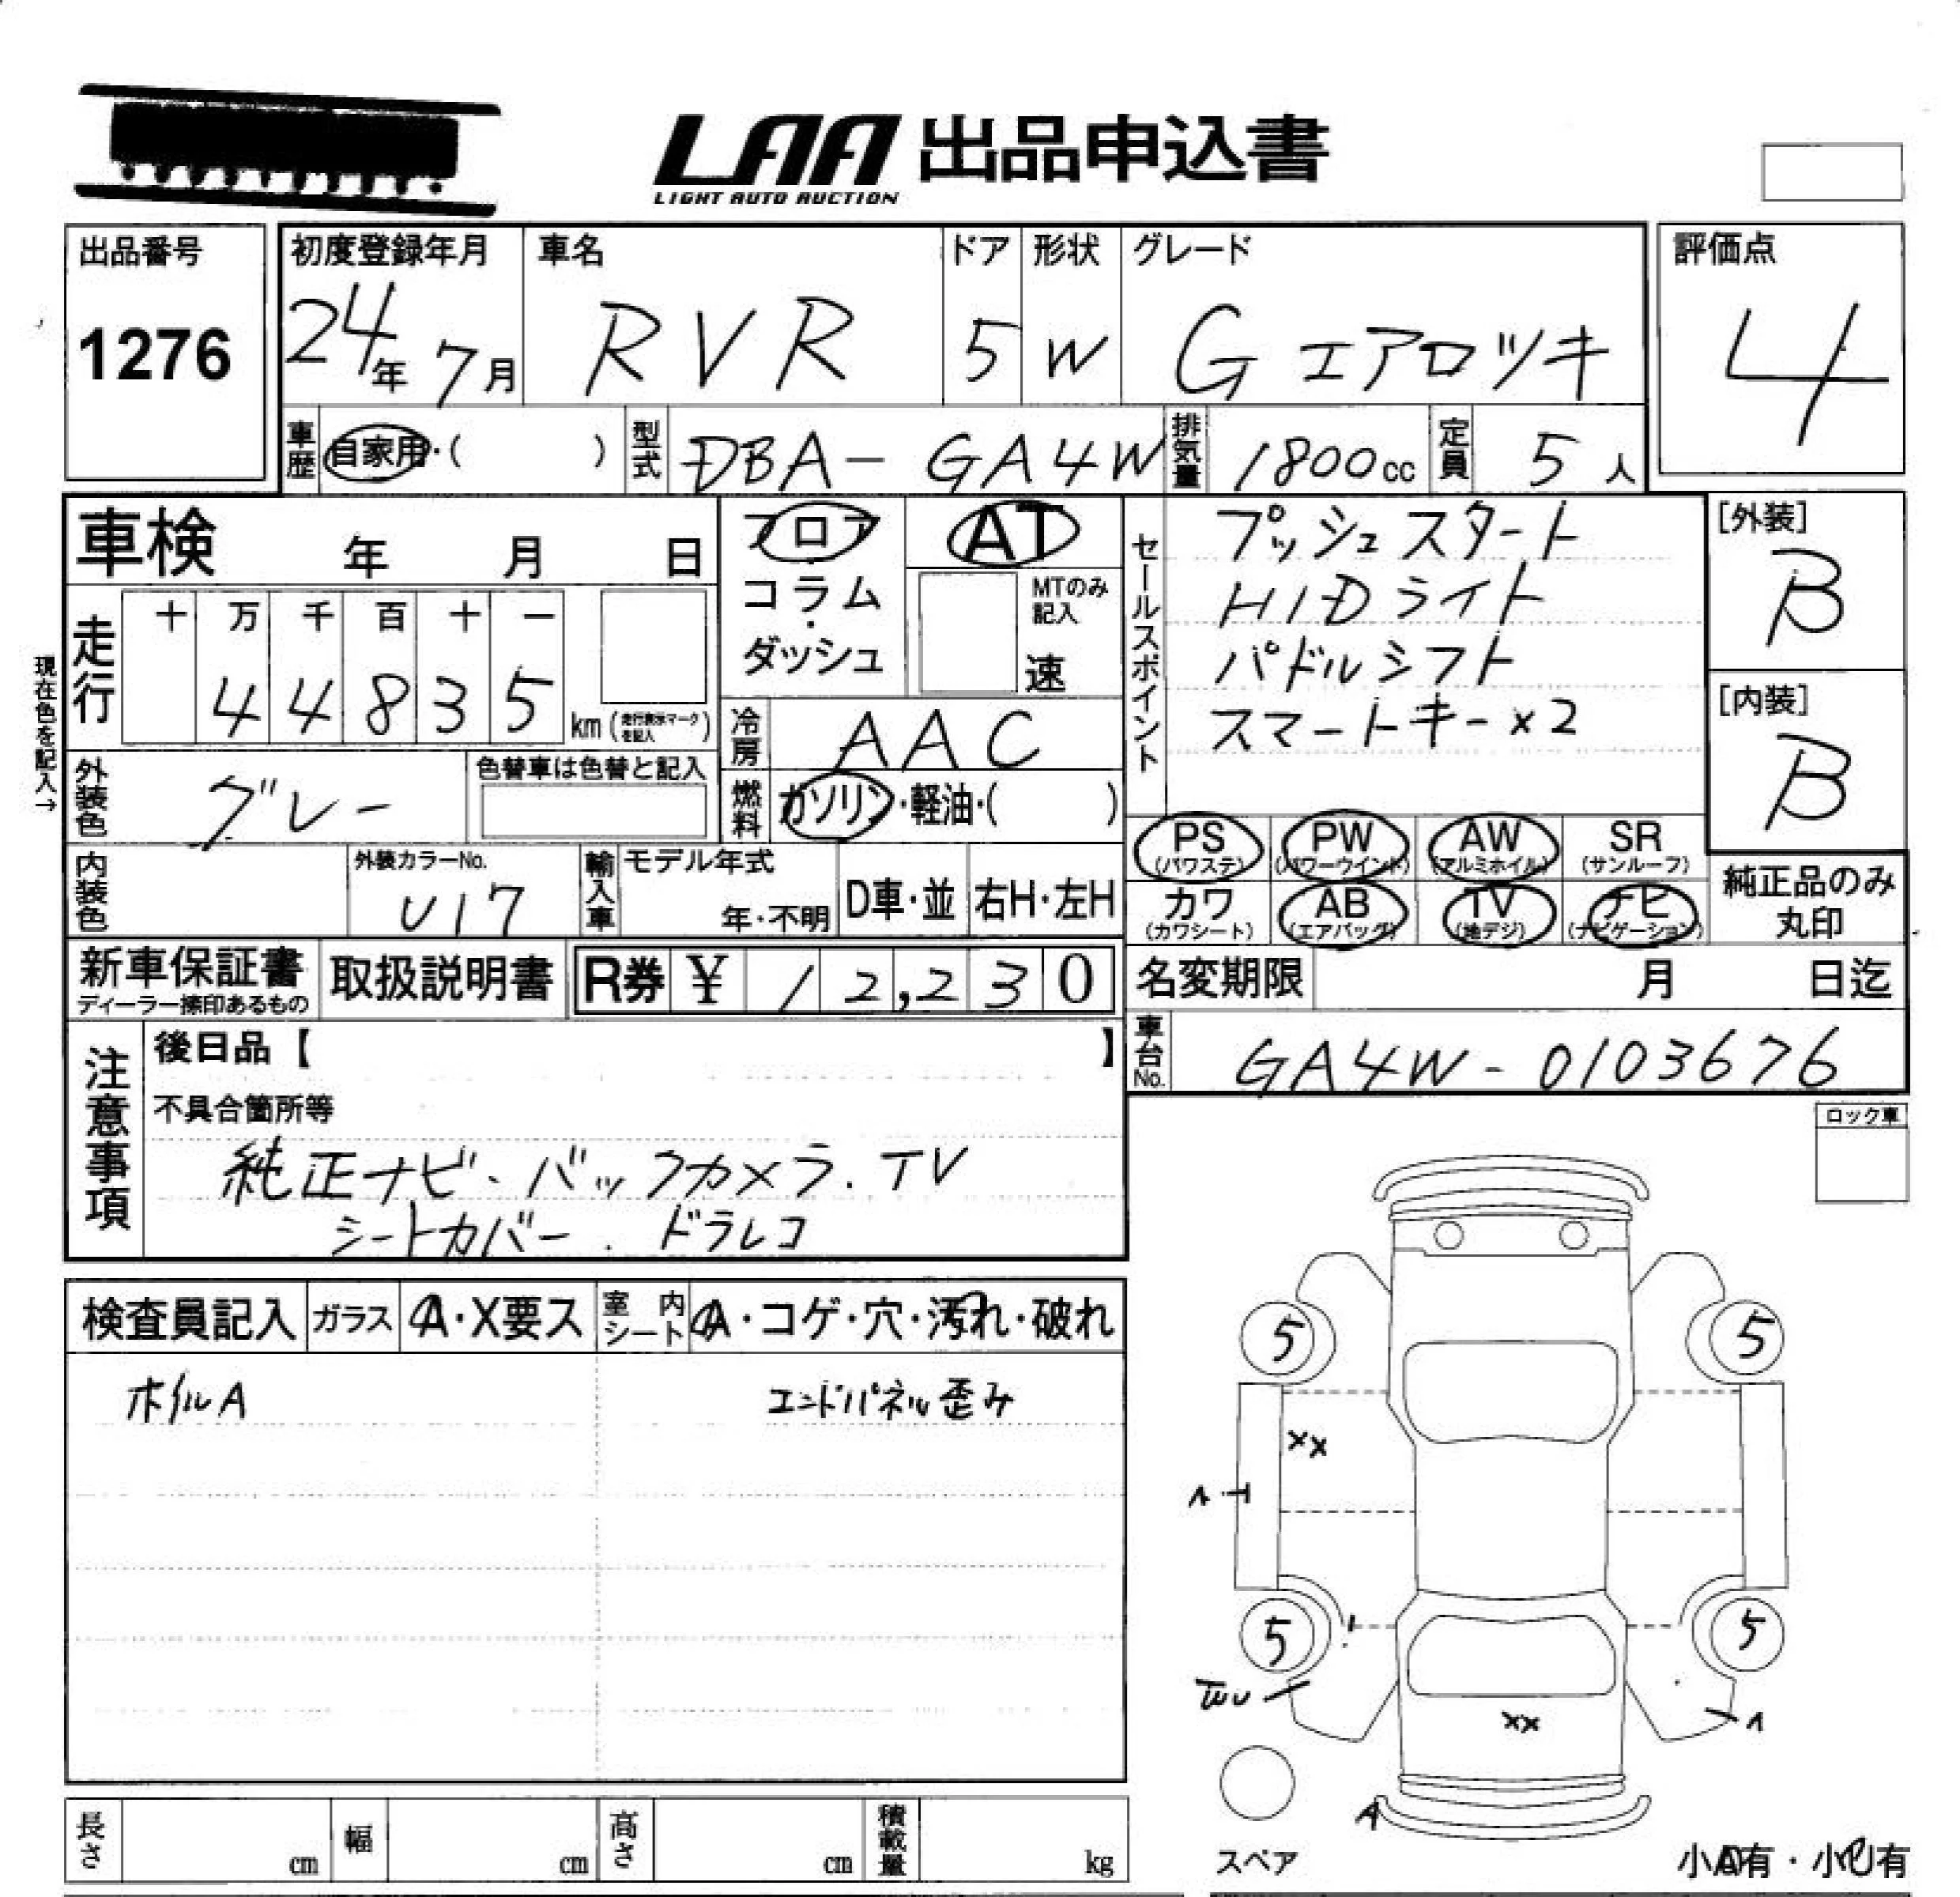 LAA 出品申込書
LIGHT AUTO AUCTION
出品番号 1276
初度登録年月 24年 7月
車名 RVR
ドア 5
形状 W
グレード G エアロツキ
評価点 4
車歴 自家用・( )
型式 DBA-GA4W
排気量 1800cc
定員 5人
車検 年 月 日
フロア
コラム
・
ダッシュ
AT
MTのみ
記入
速
セールスポイント
プッシュスタート
HIDライト
パドルシフト
スマートキー×2
[外装]
B
[内装]
B
現在色を記入→
走行 十 万 千 百 十 一
4 4 8 3 5 km (走行表示マークを記入)
冷房 AAC
外装色 グレー
色替車は色替と記入
燃料 ガソリン・軽油・( )
PS (パワステ) PW (パワーウインド) AW (アルミホイル) SR (サンルーフ)
カワ (カワシート) AB (エアバッグ) TV (地デジ) ナビ (ナビゲーション)
純正品のみ
丸印
内装色
外装カラーNo. U17
輸入車 モデル年式 年・不明 D車・並 右H・左H
新車保証書
ディーラー捺印あるもの
取扱説明書
R券 ¥ 12,230
名変期限 月 日迄
車台No. GA4W-0103676
注意事項
後日品【 】
不具合箇所等
純正ナビ・バックカメラ.TV
シートカバー.ドラレコ
ロック車
検査員記入 ガラス A・X要ス 室内シート A・コゲ・穴・汚れ・破れ
ホイルA エンドパネル歪み
5 5
XX
5 5
XX
A
スペア
小A有・小U有
長さ cm 幅 cm 高さ cm 積載量 kg